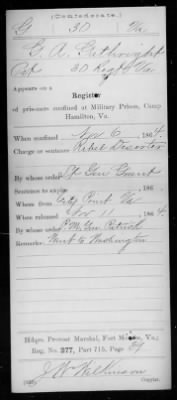 (Confederate.)
G 30 Va.
G. A. Gathright
Pvt 30 Regt Va
Appears on a
Register
of prisoners confined at Military Prison, Camp
Hamilton, Va.
When confined Nov 6, 1864.
Charge or sentence Rebel Deserter
By whose order Lt Gen Grant
Sentence to expire , 186 .
Whence from City Point Va
When released Nov 11, 1864.
By whose order P.M. Gen Patrick
Remarks: Sent to Washington
Hdqrs. Provost Marshal, Fort Monroe, Va.;
Reg. No. 277, Part 715, Page
J W Wilkinson
Copyist.